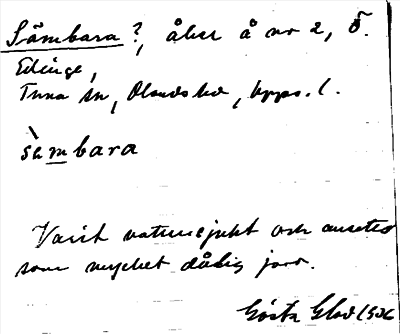 Sämbara ?, åker å no 2, Ö.
Edinge,
Tuna sn, Olands hd, Upps. l.
sämbara
Varit vattensjukt och ansetts
som mycket dålig jord.
Gösta